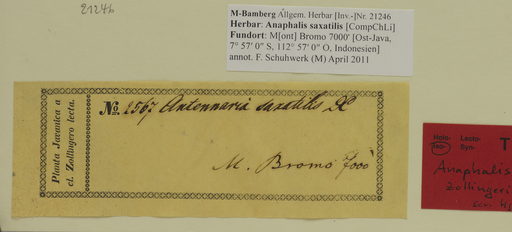 21246
M-Bamberg Allgem. Herbar [Inv.-]Nr. 21246
Herbar: Anaphalis saxatilis [CompChLi]
Fundort: M[ont] Bromo 7000' [Ost-Java,
7° 57' 0" S, 112° 57' 0" O, Indonesien]
annot. F. Schuhwerk (M) April 2011
Planta Javanica a
cl. Zollingero lecta.
No. 2567. Antennaria saxatilis
M. Bromo 7000'
Holo- Lecto- T
Iso- Syn-
Anaphalis
Zollingeri